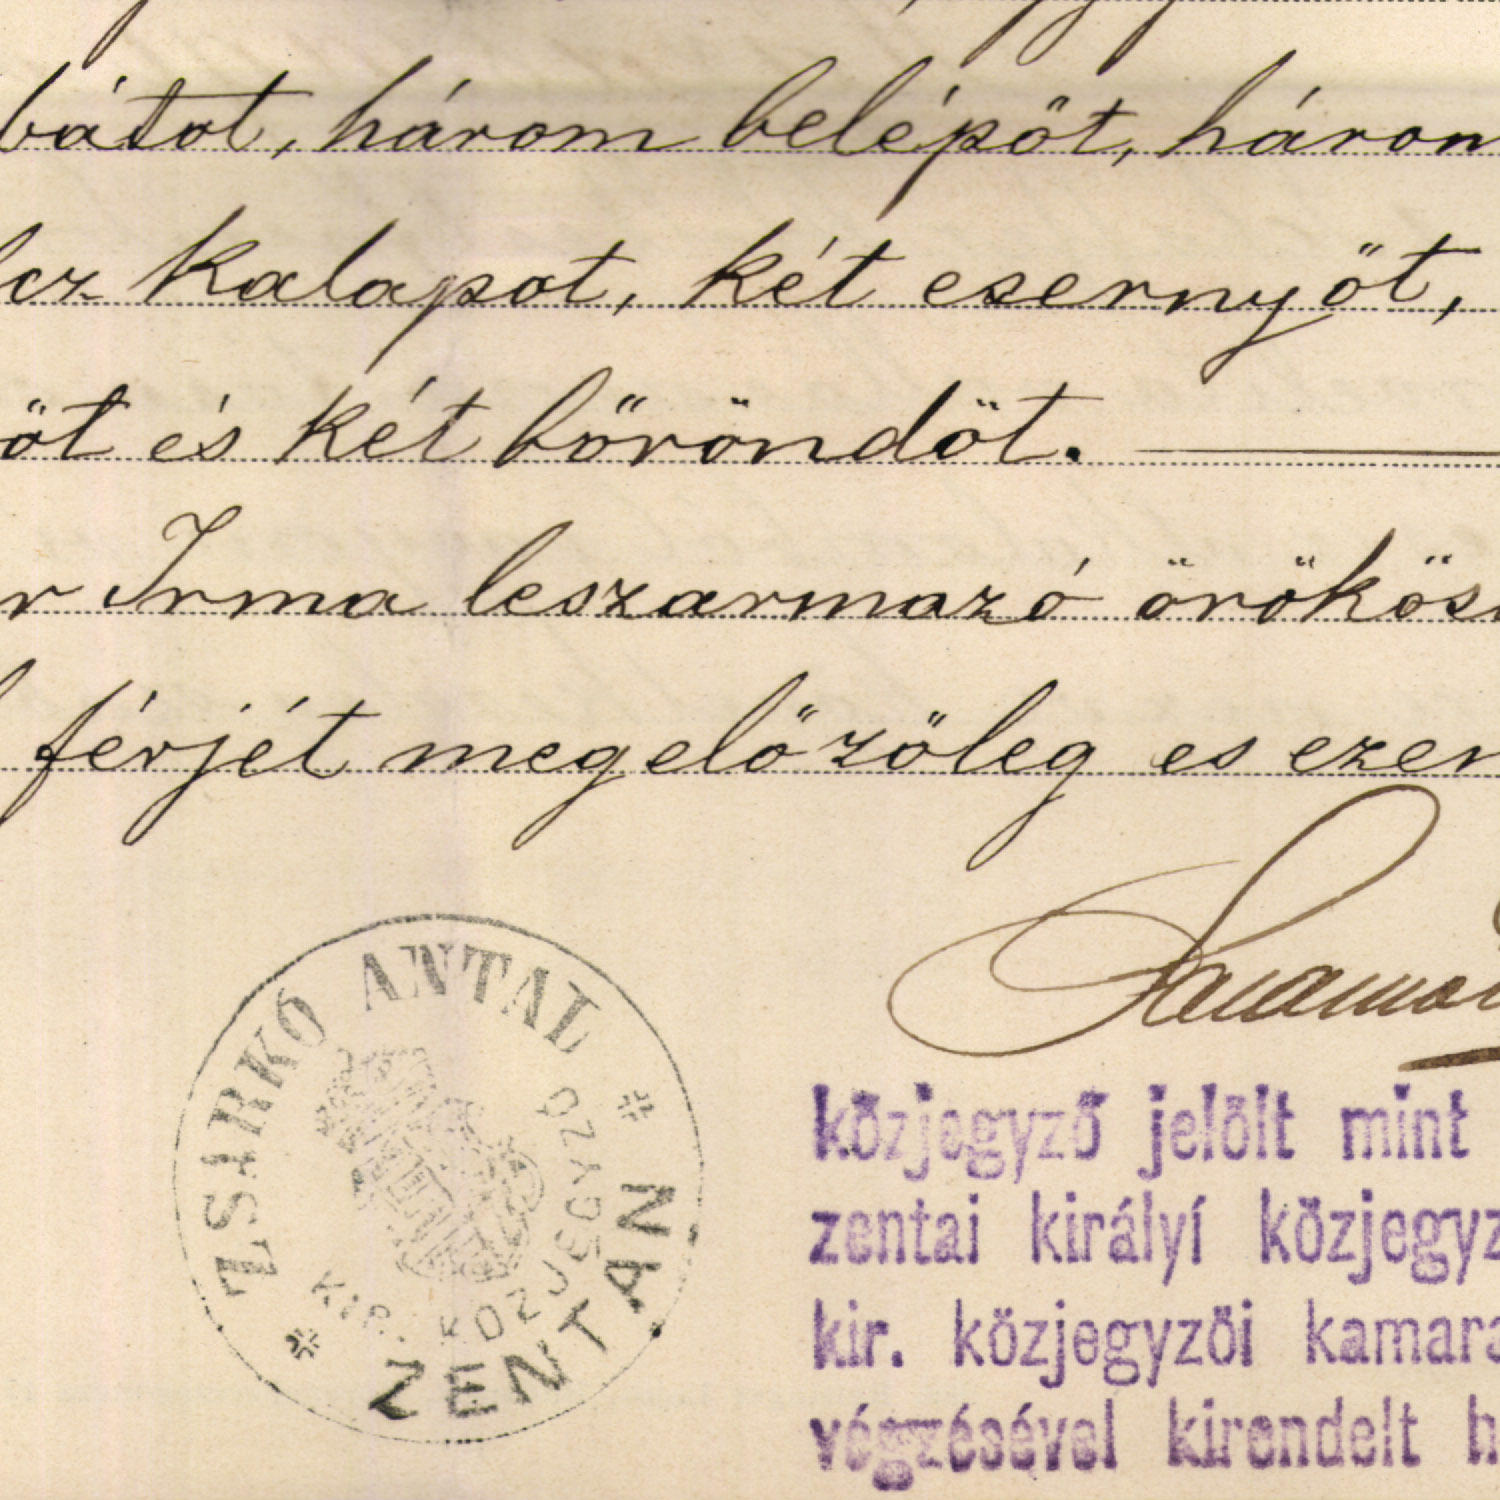 bátot, három belépőt, három
kalapot, két esernyőt,
őt és két bőröndöt.
r Irma leszarmazó örökös
férjét megelőzőleg es ezen
ZSARKÓ ANTAL
KIR. KÖZJEGYZŐ
ZENTÁN
közjegyző jelölt mint
zentai királyi közjegyz
kir. közjegyzői kamara
végzésével kirendelt h